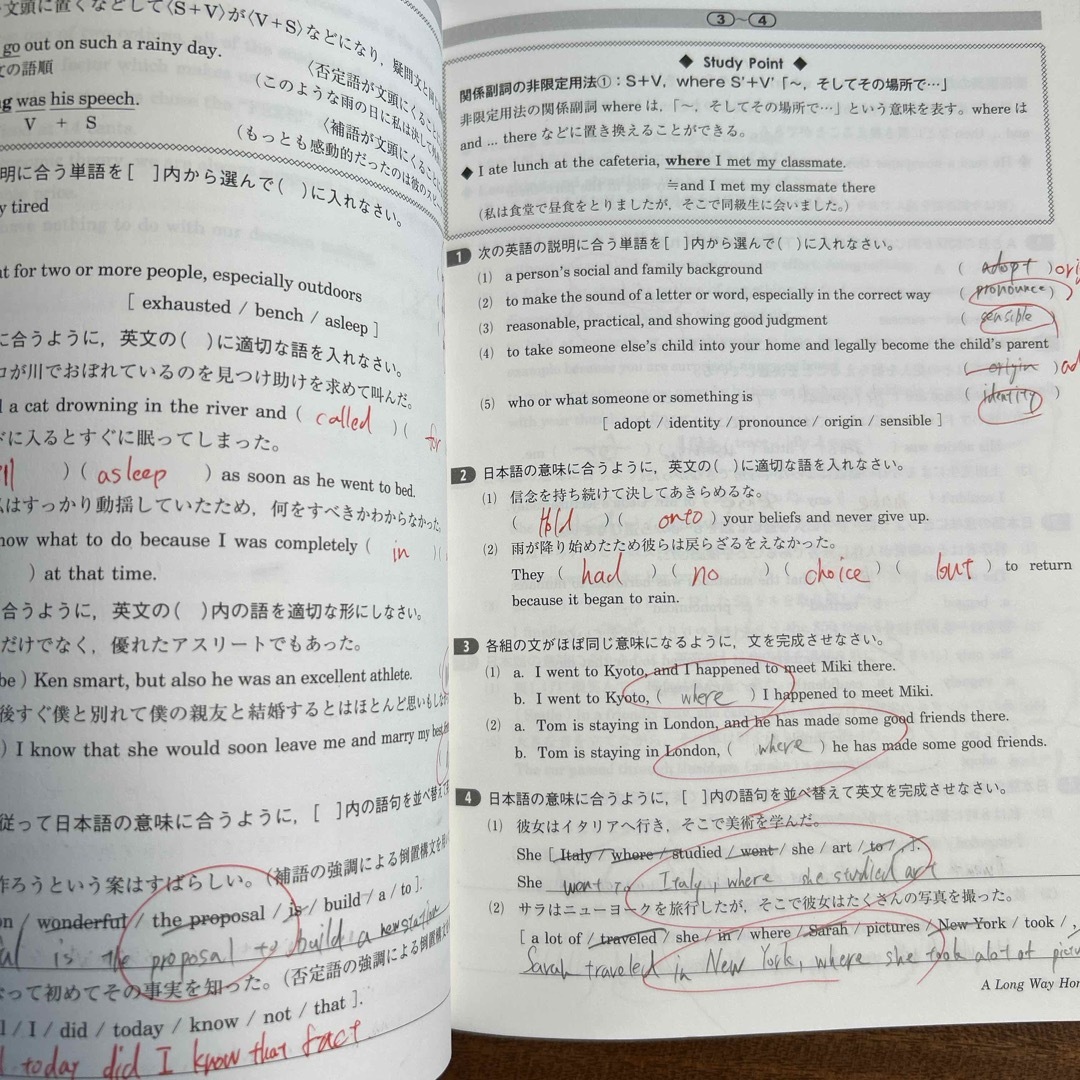 文頭に置くなどして〈S+V〉が〈V+S〉などになり，疑問文と同じ
〈否定語が文頭にくること
go out on such a rainy day.
(このような雨の日に私は決して
の語順
〈補語が文頭にくること
was his speech.
V + S
(もっとも感動的だったのは彼のスピー
明に合う単語を[ ]内から選んで( )に入れなさい。
tired
for two or more people, especially outdoors
[ exhausted / bench / asleep ]
に合うように，英文の( )に適切な語を入れなさい。
コが川でおぼれているのを見つけ助けを求めて叫んだ。
a cat drowning in the river and ( called )( for
ドに入るとすぐに眠ってしまった。
)( asleep ) as soon as he went to bed.
はすっかり動揺していたため，何をすべきかわからなかった。
now what to do because I was completely ( in )(
) at that time.
合うように，英文の( )内の語を適切な形にしなさい。
だけでなく，優れたアスリートでもあった。
be ) Ken smart, but also he was an excellent athlete.
後すぐ僕と別れて僕の親友と結婚するとはほとんど思いもしな
) I know that she would soon leave me and marry my best
従って日本語の意味に合うように，[ ]内の語句を並べ替えて
作ろうという案はすばらしい。(補語の強調による倒置構文を
on / wonderful / the proposal / is / build / a / to ].
is the proposal to build a new station
なって初めてその事実を知った。(否定語の強調による倒置構文
/ I / did / today / know / not / that ].
today did I know that fact
3～4
◆ Study Point ◆
関係副詞の非限定用法①：S+V, where S'+V'「～，そしてその場所で…」
非限定用法の関係副詞 where は,「～，そしてその場所で…」という意味を表す。where は
and ... there などに置き換えることができる。
◆ I ate lunch at the cafeteria, where I met my classmate.
≒and I met my classmate there
(私は食堂で昼食をとりましたが，そこで同級生に会いました。)
1 次の英語の説明に合う単語を[ ]内から選んで( )に入れなさい。
(1) a person's social and family background ( adopt )
(2) to make the sound of a letter or word, especially in the correct way ( pronounce )
(3) reasonable, practical, and showing good judgment ( sensible )
(4) to take someone else's child into your home and legally become the child's parent
( origin )
(5) who or what someone or something is ( identity )
[ adopt / identity / pronounce / origin / sensible ]
2 日本語の意味に合うように，英文の( )に適切な語を入れなさい。
(1) 信念を持ち続けて決してあきらめるな。
( Hold )( onto ) your beliefs and never give up.
(2) 雨が降り始めたため彼らは戻らざるをえなかった。
They ( had )( no )( choice )( but ) to return
because it began to rain.
3 各組の文がほぼ同じ意味になるように，文を完成させなさい。
(1) a. I went to Kyoto, and I happened to meet Miki there.
b. I went to Kyoto, ( where ) I happened to meet Miki.
(2) a. Tom is staying in London, and he has made some good friends there.
b. Tom is staying in London, ( where ) he has made some good friends.
4 日本語の意味に合うように，[ ]内の語句を並べ替えて英文を完成させなさい。
(1) 彼女はイタリアへ行き，そこで美術を学んだ。
She [ Italy / where / studied / went / she / art / to / , ].
She went to Italy, where she studied art
(2) サラはニューヨークを旅行したが，そこで彼女はたくさんの写真を撮った。
[ a lot of / traveled / she / in / where / Sarah / pictures / New York / took / ,
Sarah traveled in New York, where she took a lot of
A Long Way